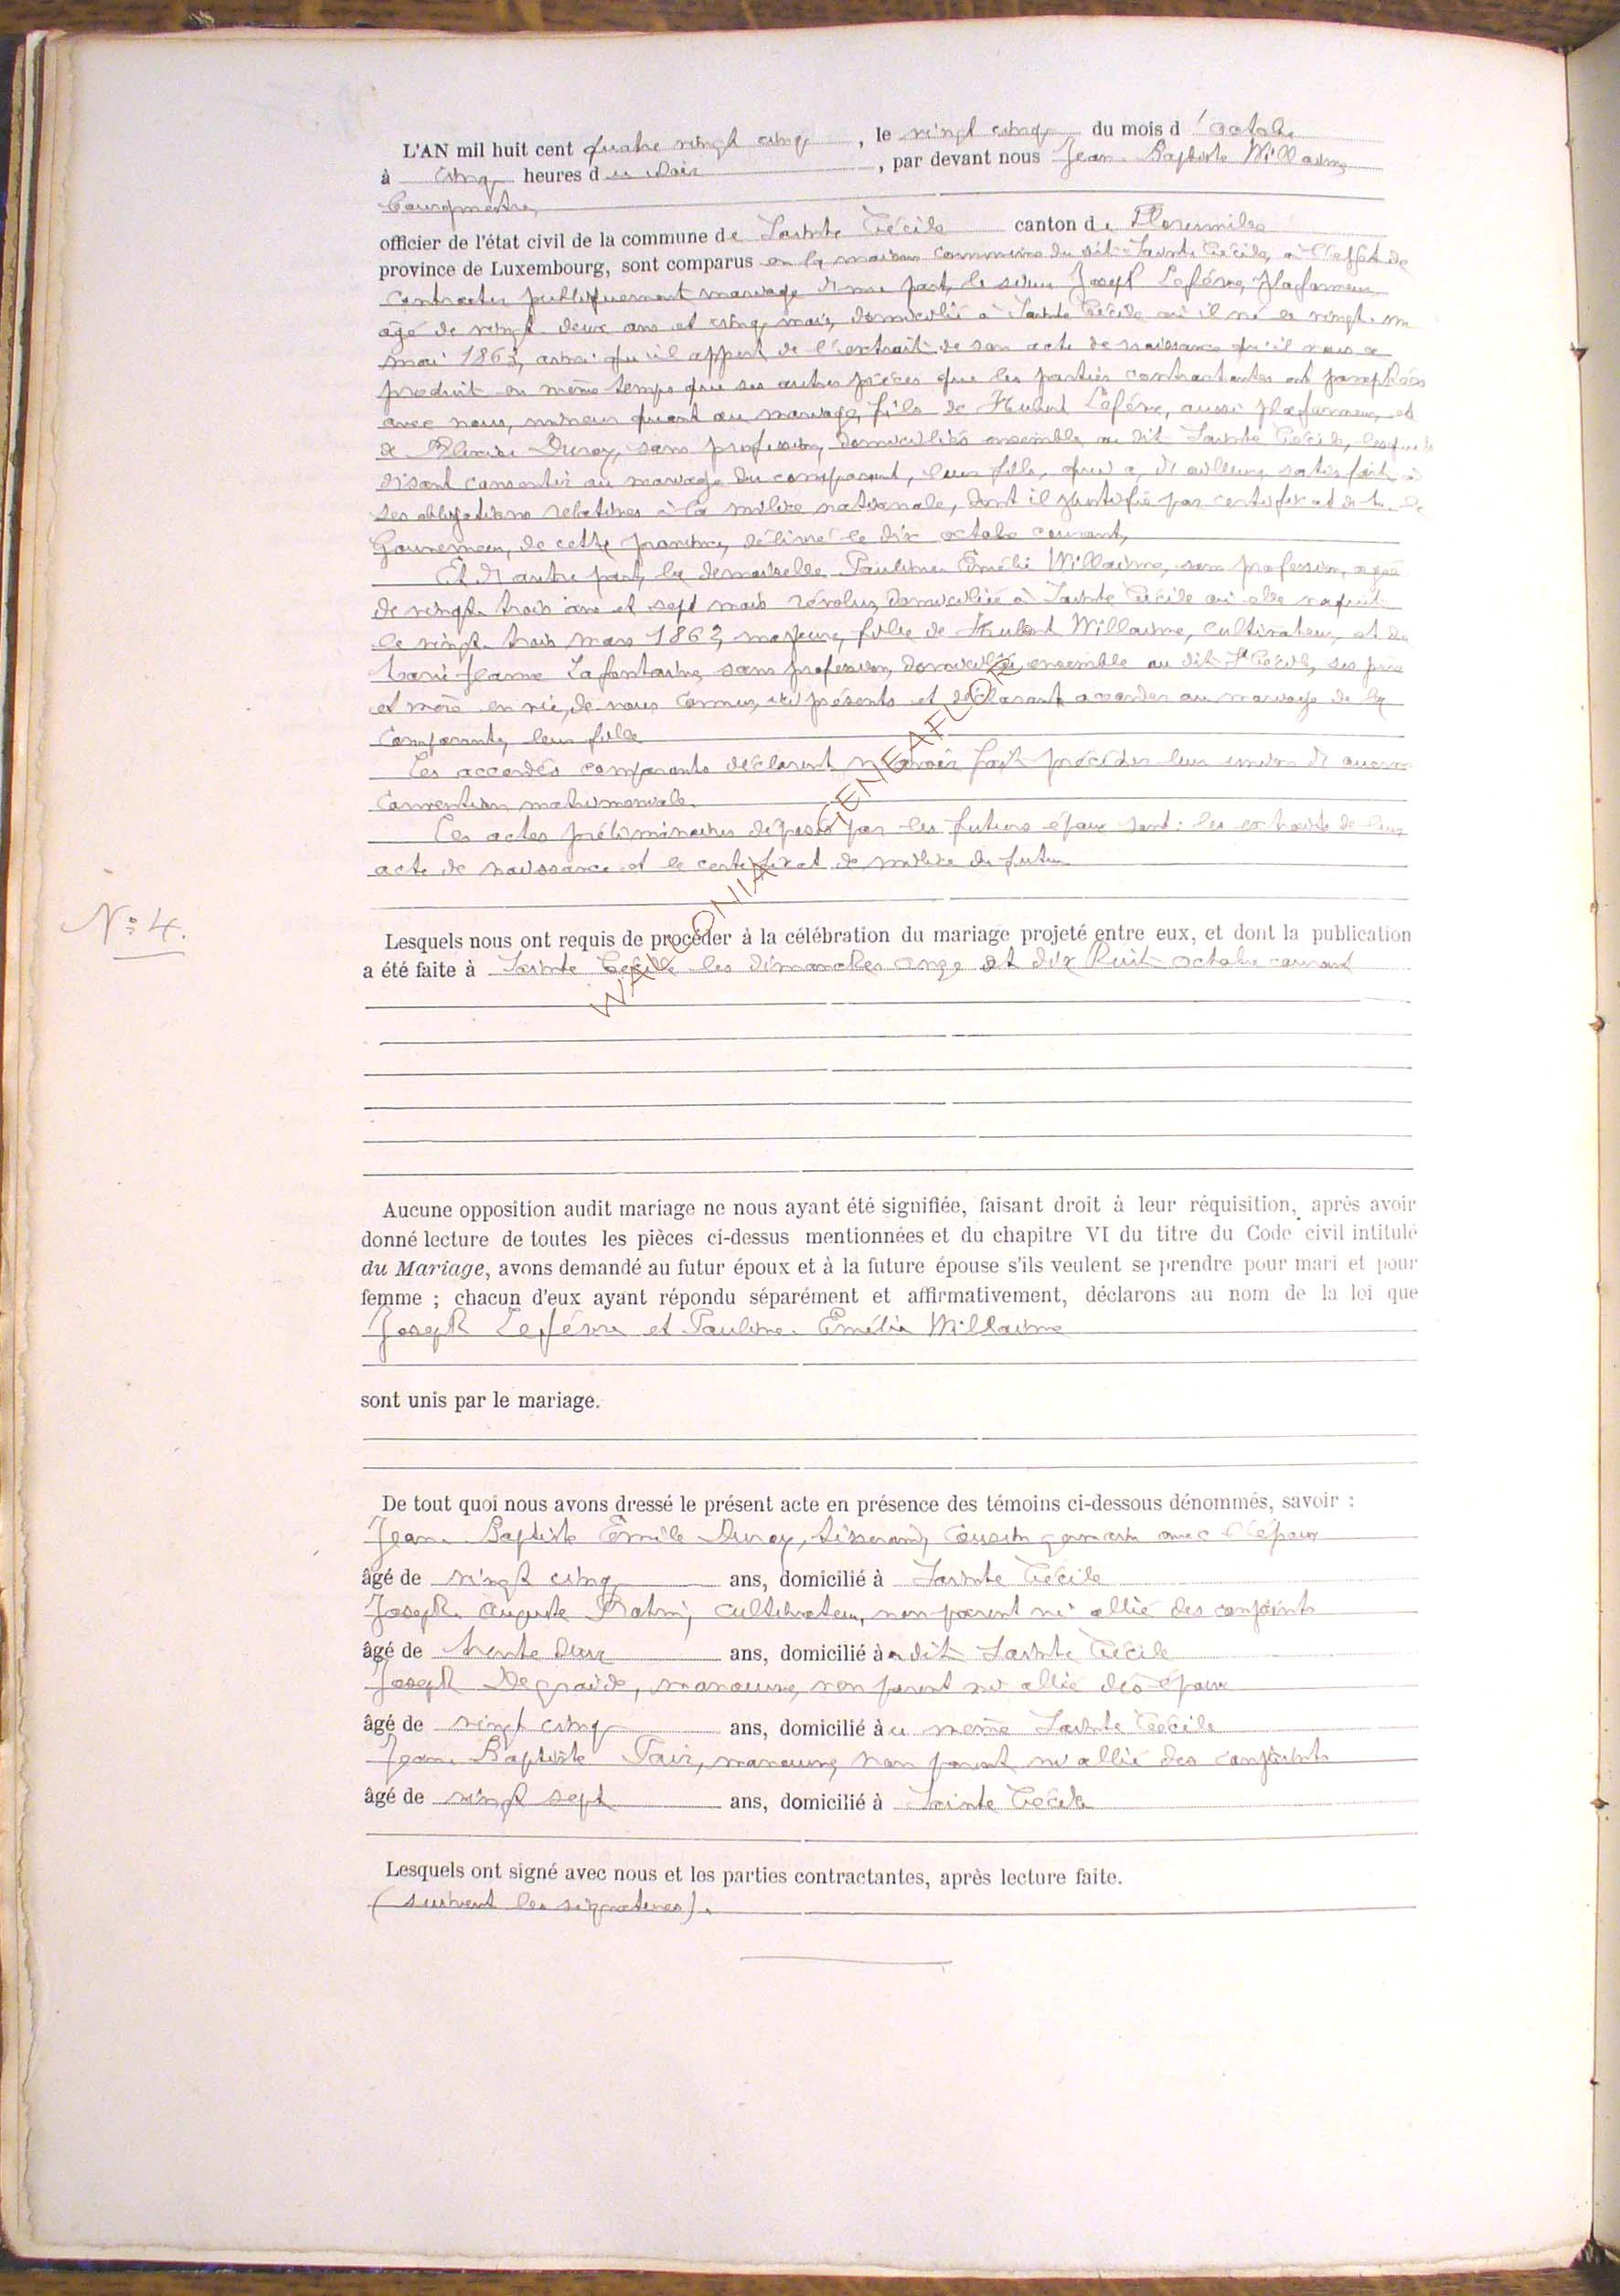 L'AN mil huit cent quatre vingt cinq, le vingt cinq du mois d'octobre
à cinq heures du soir, par devant nous Jean-Baptiste Willaime
bourgmestre,
officier de l'état civil de la commune de Sainte Cécile canton de Florenville
province de Luxembourg, sont comparus en la maison commune du dit Sainte Cécile, à l'effet de
contracter publiquement mariage d'une part, le sieur Joseph Lefévre, plafonneur,
âgé de vingt-deux ans et cinq mois, domicilié à Sainte Cécile où il né le vingt-un
mai 1863, ainsi qu'il appert de l'extrait de son acte de naissance qu'il nous a
produit en même temps que les autres pièces que les parties contractantes ont paraphées
avec nous, mineur quant au mariage, fils de Hubert Lefévre, aussi plafonneur, et
de Duroy, sans profession, domiciliés ensemble au dit Sainte Cécile, lesquels
disant consentir au mariage du comparant, leur fils, qui a, d'ailleurs, satisfait à
ses obligations relatives à la milice nationale, dont il justifie par certificat de le
Gouverneur, de cette province, délivré le dix octobre courant,
Et d'autre part, la demoiselle Pauline-Emélie Willaime, sans profession, agée
de vingt-trois ans et sept mois révolus, domiciliée à Sainte Cécile où elle naquit
le vingt-trois mars 1862, majeure, fille de Hubert Willaime, cultivateur, et de
Marie Jeanne Lafontaine, sans profession, domiciliés ensemble au dit Ste Cécile, ses père
et mère en vie, de nous connus, ici présents et déclarant accorder au mariage de la
comparante, leur fille
Les accordés comparants déclarent n'avoir fait précéder leur union d'aucune
convention matrimoniale.
Les actes préliminaires déposés par les futurs époux sont: les extraits de leur
acte de naissance et le certificat de milice du futur
N° 4.
Lesquels nous ont requis de procéder à la célébration du mariage projeté entre eux, et dont la publication
a été faite à Sainte Cécile les dimanches onze et dix huit octobre courant
WALLONIA GENEAFLORE
Aucune opposition audit mariage ne nous ayant été signifiée, faisant droit à leur réquisition, après avoir
donné lecture de toutes les pièces ci-dessus mentionnées et du chapitre VI du titre du Code civil intitulé
du Mariage, avons demandé au futur époux et à la future épouse s'ils veulent se prendre pour mari et pour
femme ; chacun d'eux ayant répondu séparément et affirmativement, déclarons au nom de la loi que
Joseph Lefévre et Pauline-Emélie Willaime
sont unis par le mariage.
De tout quoi nous avons dressé le présent acte en présence des témoins ci-dessous dénommés, savoir :
Jean-Baptiste Emile Duroy, tisserand, cousin germain avec l'époux
âgé de vingt cinq ans, domicilié à Sainte Cécile
Joseph-Auguste cultivateur, non parent ni allié des conjoints
âgé de trente deux ans, domicilié à dit Sainte Cécile
Joseph Degraide, manoeuvre, non parent ni allié des époux
âgé de vingt cinq ans, domicilié à même Sainte Cécile
Jean-Baptiste manoeuvre, non parent ni allié des conjoints
âgé de vingt sept ans, domicilié à Sainte Cécile
Lesquels ont signé avec nous et les parties contractantes, après lecture faite.
(suivent les signatures).